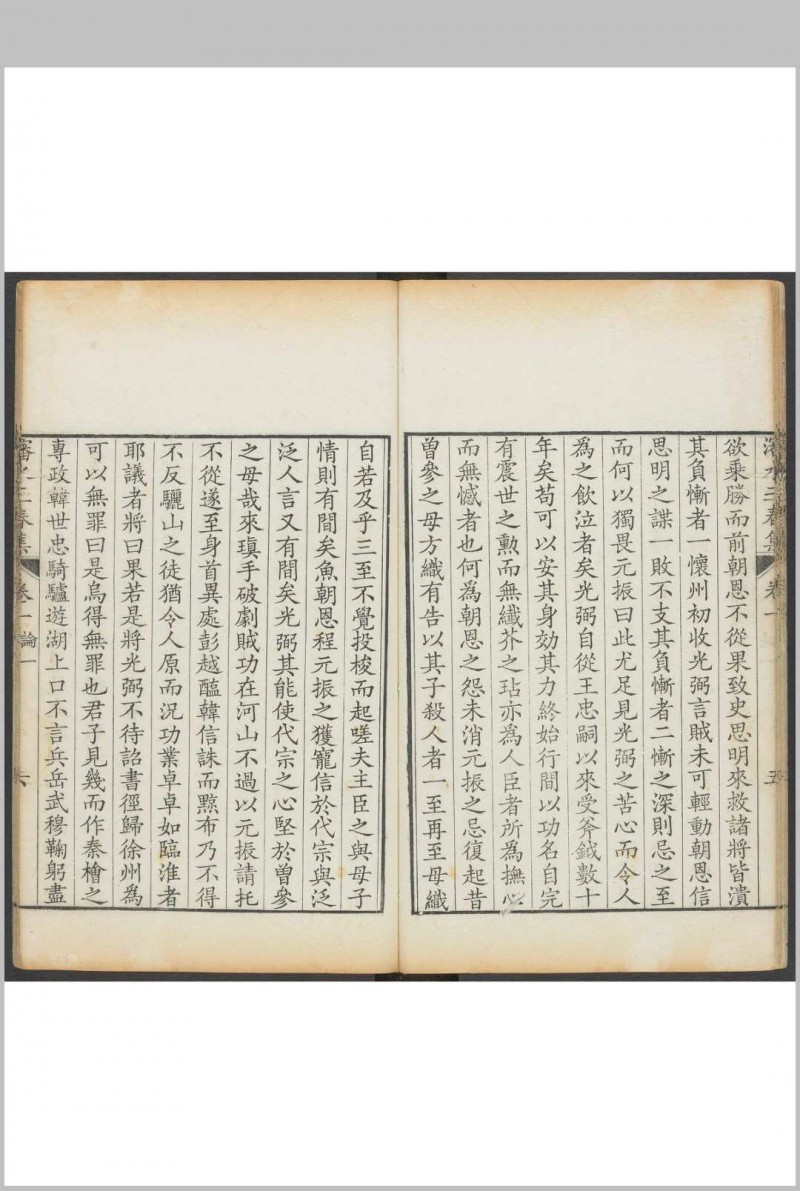 欲乘勝而前朝恩不從果致史思明來救諸將皆潰
其負慚者一懷州初收光弼言賊未可輕動朝恩信
思明之諜一敗不支其負慚者二慚之深則忌之至
而何以獨畏元振曰此尤足見光弼之苦心而令人
為之飲泣者矣光弼自從王忠嗣以來受斧鉞數十
年矣苟可以安其身効其力終始行間以功名自完
有震世之勲而無纖芥之玷亦為人臣者所為撫心
而無憾者也何為朝恩之怨未消元振之忌復起昔
曽參之母方織有告以其子殺人者一至再至母織
自若及乎三至不覺投梭而起嗟夫主臣之與母子
情則有間矣魚朝恩程元振之獲寵信於代宗與泛
泛人言又有間矣光弼其能使代宗之心堅於曽參
之母哉來瑱手破劇賊功在河山不過以元振請托
不從遂至身首異處彭越醢韓信誅而黥布乃不得
不反驪山之徒猶令人原而況功業卓卓如臨淮者
耶議者將曰果若是將光弼不待詔書徑歸徐州為
可以無罪曰是烏得無罪也君子見幾而作秦檜之
專政韓世忠騎驢遊湖上口不言兵岳武穆鞠躬盡
卷一 論一 六